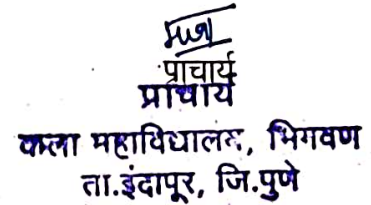 प्राचार्य
प्राचार्य
कला महाविद्यालय, भिगवण
ता.इंदापूर, जि.पुणे